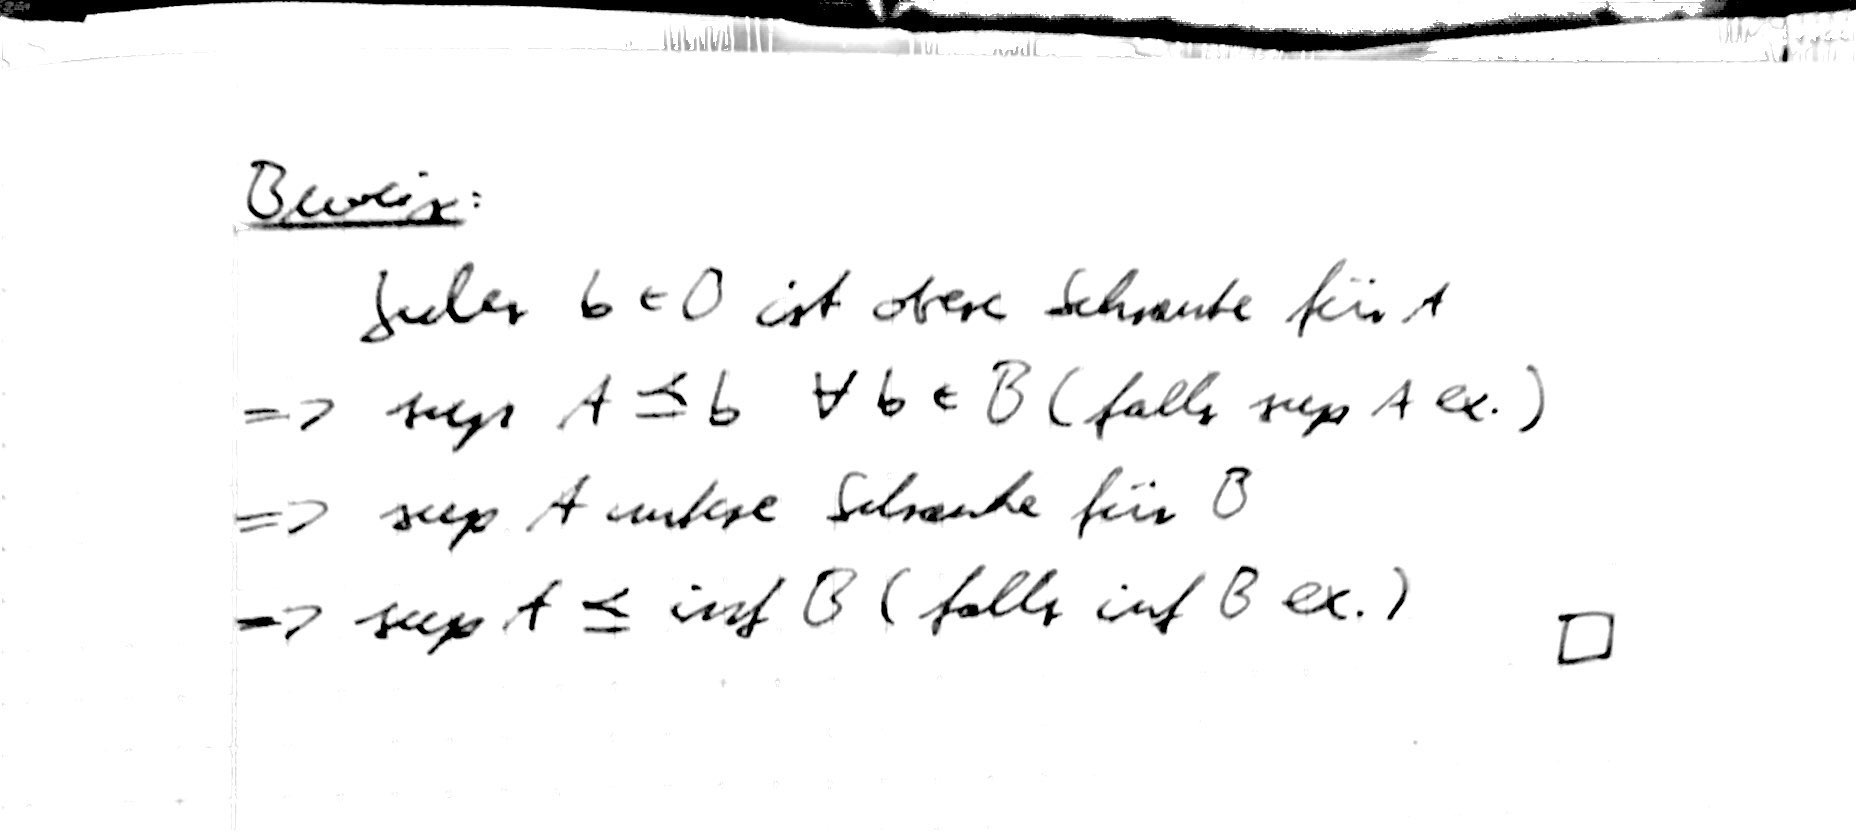 Beweis:
Jedes b ∈ B ist obere Schranke für A
=> sup A ≤ b ∀ b ∈ B (falls sup A ex.)
=> sup A untere Schranke für B
=> sup A ≤ inf B (falls inf B ex.) □